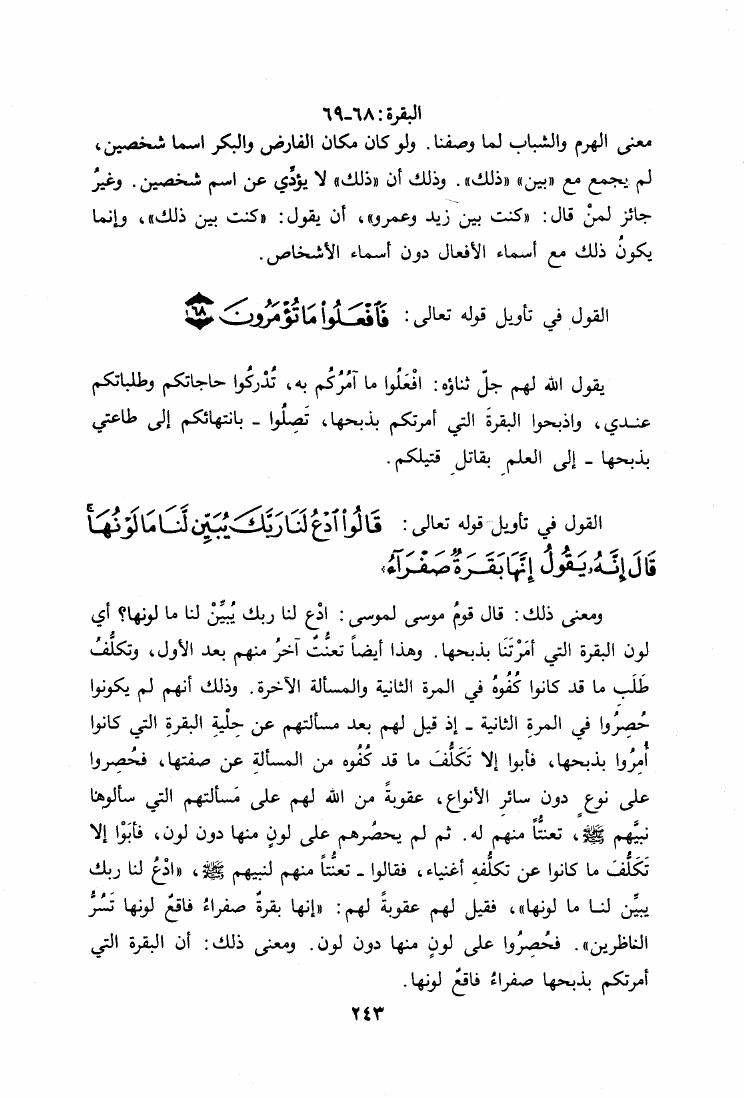 البقرة: ٦٨-٦٩
معنى الهرم والشباب لما وصفنا. ولو كان مكان الفارض والبكر اسما شخصين،
لم يجمع مع «بين» «ذلك». وذلك أن «ذلك» لا يؤدِّي عن اسم شخصين. وغيرُ
جائز لمنْ قال: «كنت بين زيد وعمرو»، أن يقول: «كنت بين ذلك»، وإنما
يكونُ ذلك مع أسماء الأفعال دون أسماء الأشخاص.
القول في تأويل قوله تعالى: فَٱفْعَلُوا۟ مَا تُؤْمَرُونَ ٦٨
يقول الله لهم جلّ ثناؤه: افْعَلُوا ما آمُرُكُم به، تُدْركُوا حاجاتكم وطلباتكم
عندي، واذبحوا البقرةَ التي أمرتكم بذبحها، تَصِلُوا - بانتهائكم إلى طاعتي
بذبحها - إلى العلمِ بقاتلِ قتيلكم.
القول في تأويل قوله تعالى: قَالُوا۟ ٱدْعُ لَنَا رَبَّكَ يُبَيِّن لَّنَا مَا لَوْنُهَا ۚ
قَالَ إِنَّهُۥ يَقُولُ إِنَّهَا بَقَرَةٌ صَفْرَآءُ
ومعنى ذلك: قال قومُ موسى لموسى: ادْع لنا ربك يُبيِّنْ لنا ما لونها؟ أي
لون البقرة التي أمَرْتَنَا بذبحها. وهذا أيضاً تعنُّتٌ آخرُ منهم بعد الأول، وتكلُّفُ
طَلَبِ ما قد كانوا كُفُوهُ في المرة الثانية والمسألة الآخرة. وذلك أنهم لم يكونوا
حُصِرُوا في المرة الثانية - إذ قيل لهم بعد مسألتهم عن حِلْيةِ البقرةِ التي كانوا
أُمِرُوا بذبحها، فأبوا إلا تَكَلُّفَ ما قد كُفُوه من المسألةِ عن صفتها، فحُصِروا
على نوعٍ دون سائرِ الأنواع، عقوبةً من الله لهم على مَسألتهم التي سألوها
نبيَّهم ﷺ، تعنتُّاً منهم له. ثم لم يحصُرهم على لونٍ منها دون لون، فأبَوْا إلا
تَكَلُّفَ ما كانوا عن تكلُّفهِ أغنياء، فقالوا - تعنُّتاً منهم لنبيهم ﷺ، «ادْعُ لنا ربك
يبيِّن لنا ما لونها»، فقيل لهم عقوبةً لهم: «إنها بقرةٌ صفراءُ فاقعٌ لونها تَسُرُّ
الناظرين». فحُصِرُوا على لونٍ منها دون لون. ومعنى ذلك: أن البقرة التي
أمرتكم بذبحها صفراءُ فاقعٌ لونها.
٢٤٣